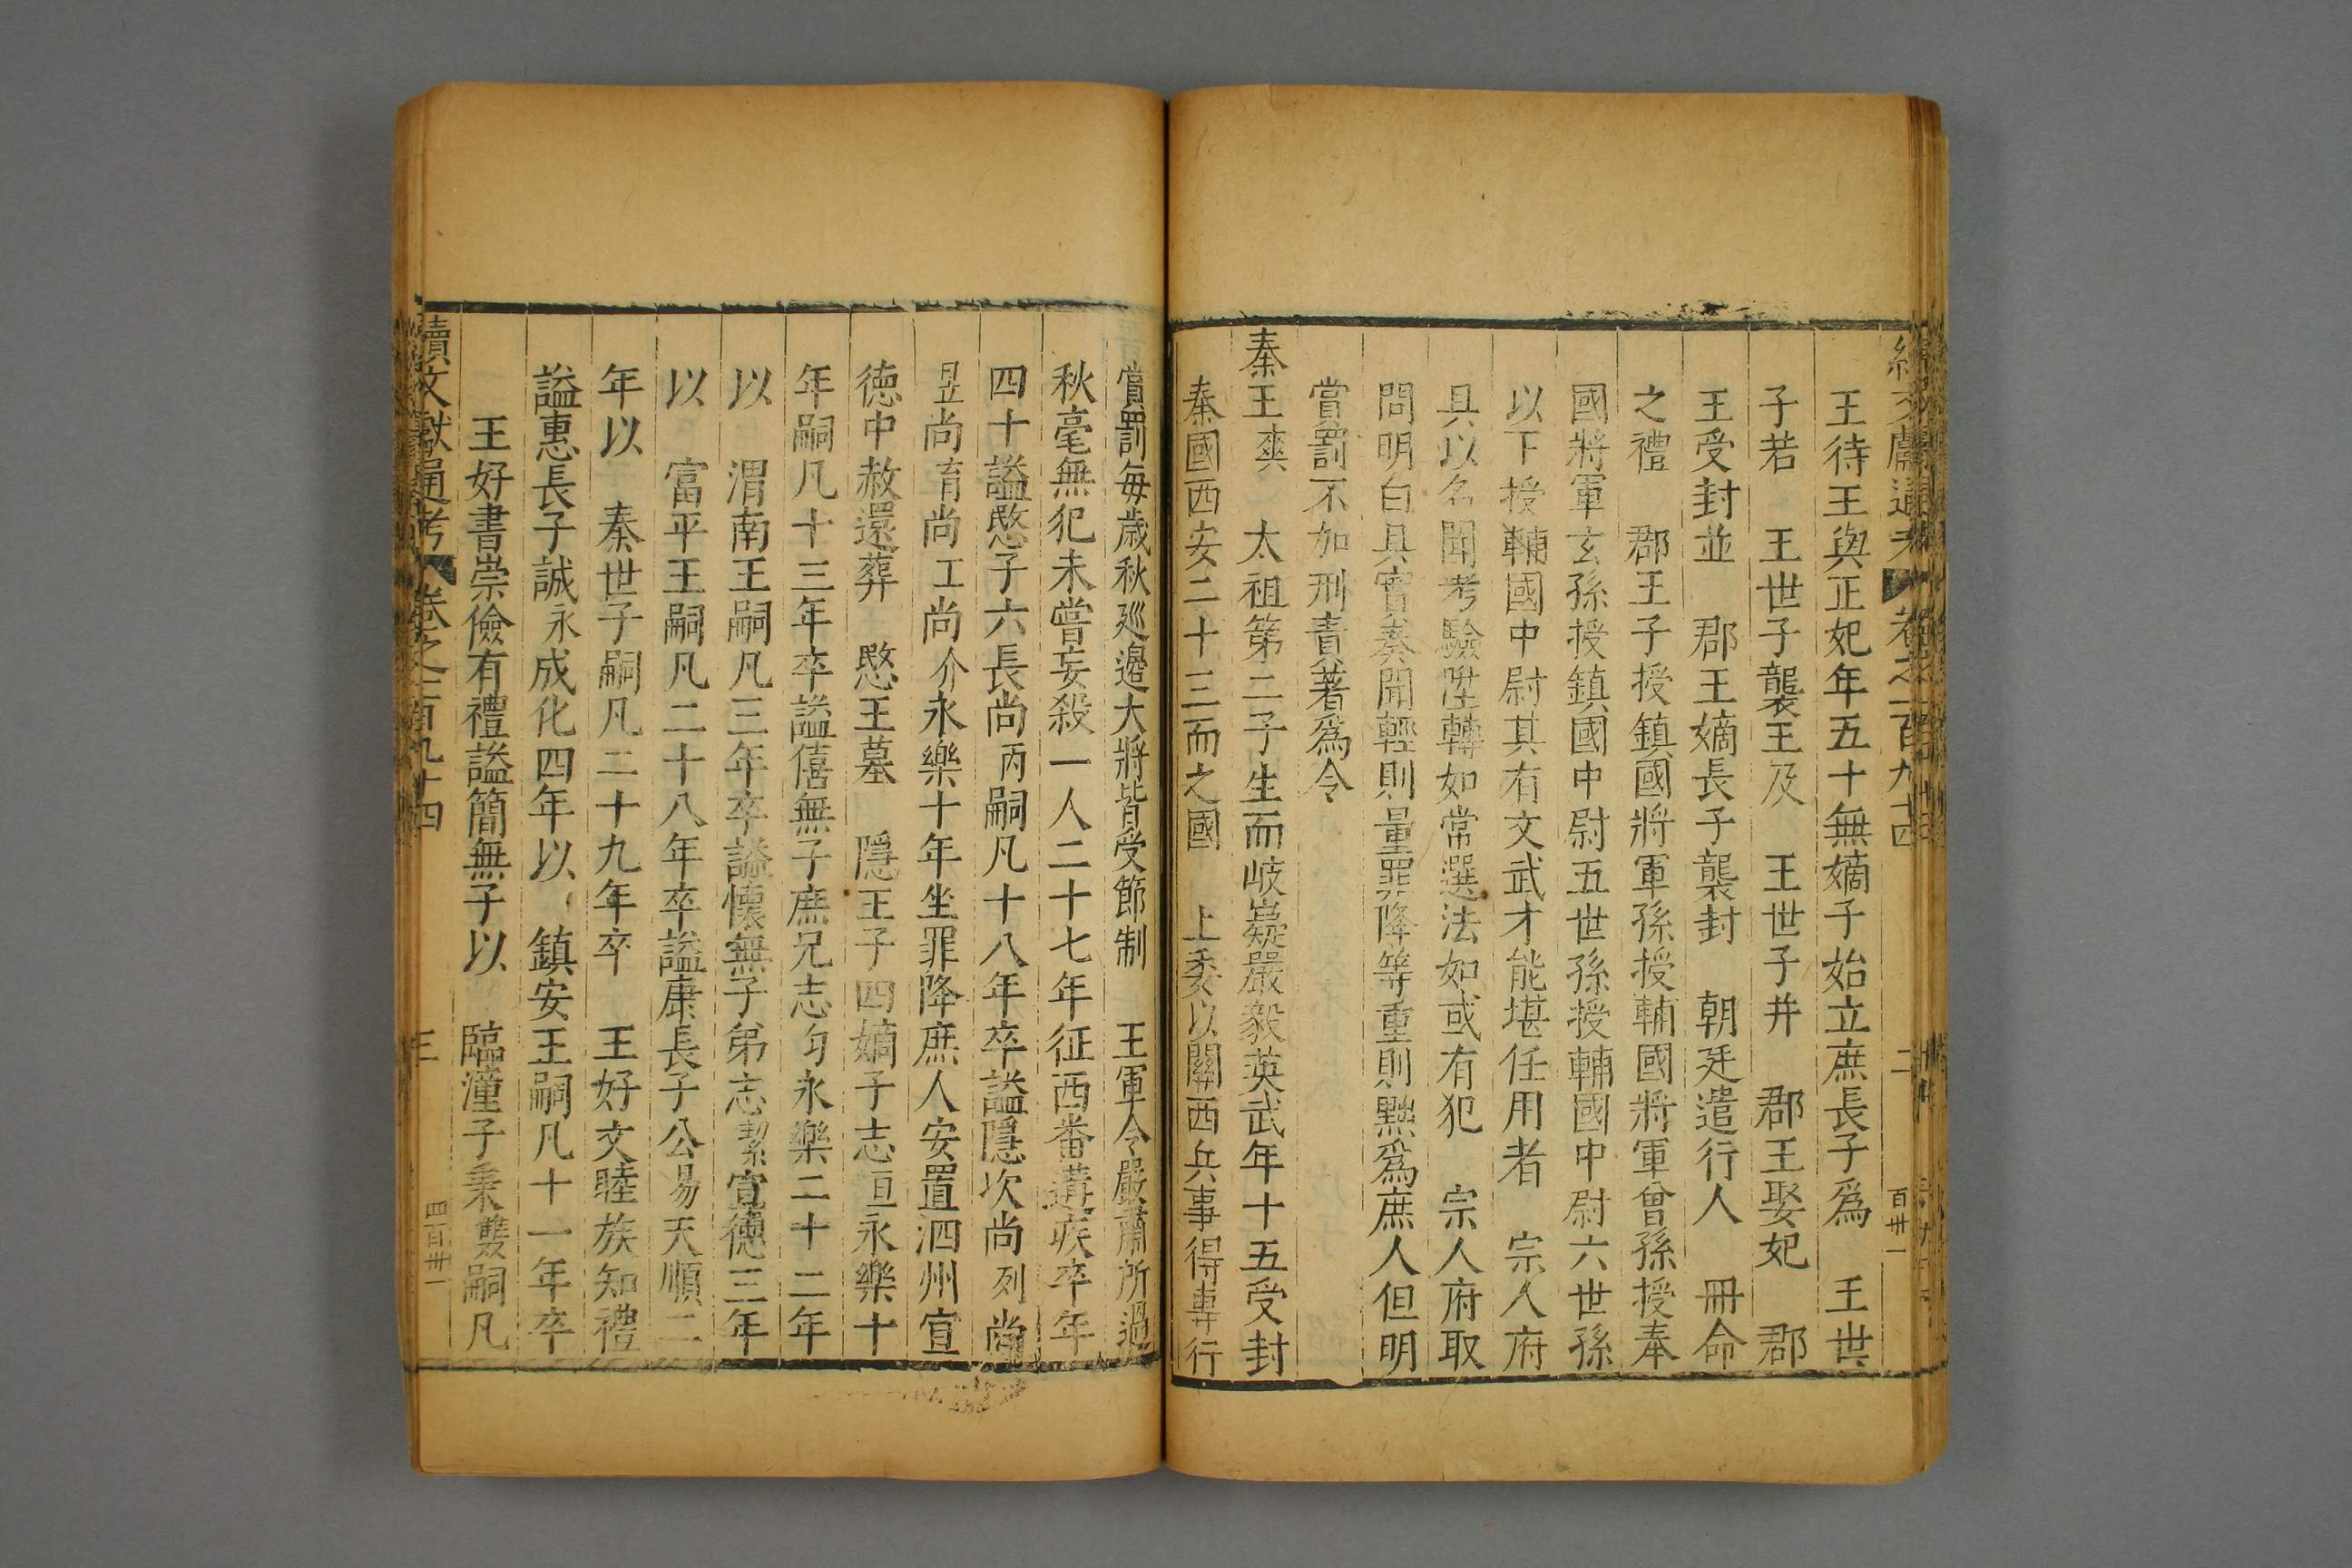 續文獻通考 卷之二百九十四 二 百卅一
王待王與正妃年五十無嫡子始立庶長子爲 王世
子若 王世子襲王及 王世子并 郡王娶妃 郡
王受封並 郡王嫡長子襲封 朝廷遣行人 冊命
之禮 郡王子授鎮國將軍孫授輔國將軍曾孫授奉
國將軍玄孫授鎮國中尉五世孫授輔國中尉六世孫
以下授輔國中尉其有文武才能堪任用者 宗人府
具以名聞考驗陞轉如常選法如或有犯 宗人府取
問明白具實奏聞輕則量罪降等重則黜爲庶人但明
賞罰不加刑責著爲令
秦王樉 太祖第二子生而岐嶷嚴毅英武年十五受封
秦國西安二十三而之國 上委以關西兵事得專行
賞罰毎歲秋廵邊大將皆受節制 王軍令嚴肅所過
秋毫無犯未嘗妄殺一人二十七年征西番遘疾卒年
四十謚愍子六長尚炳嗣凡十八年卒謚隱次尚烈尚
昱尚育尚工尚介永樂十年坐罪降庶人安置泗州宣
徳中赦還葬 愍王墓 隱王子四嫡子志亘永樂十
年嗣凡十三年卒謚僖無子庶兄志均永樂二十二年
以 渭南王嗣凡三年卒謚懷無子弟志㓗宣德三年
以 富平王嗣凡二十八年卒謚康長子公昜天順二
年以 秦世子嗣凡二十九年卒 王好文睦族知禮
謚惠長子誠永成化四年以 鎮安王嗣凡十一年卒
王好書崇儉有禮謚簡無子以 臨潼子秉㸤嗣凡
續文獻通考 卷之二百九十四 三 四百卅一